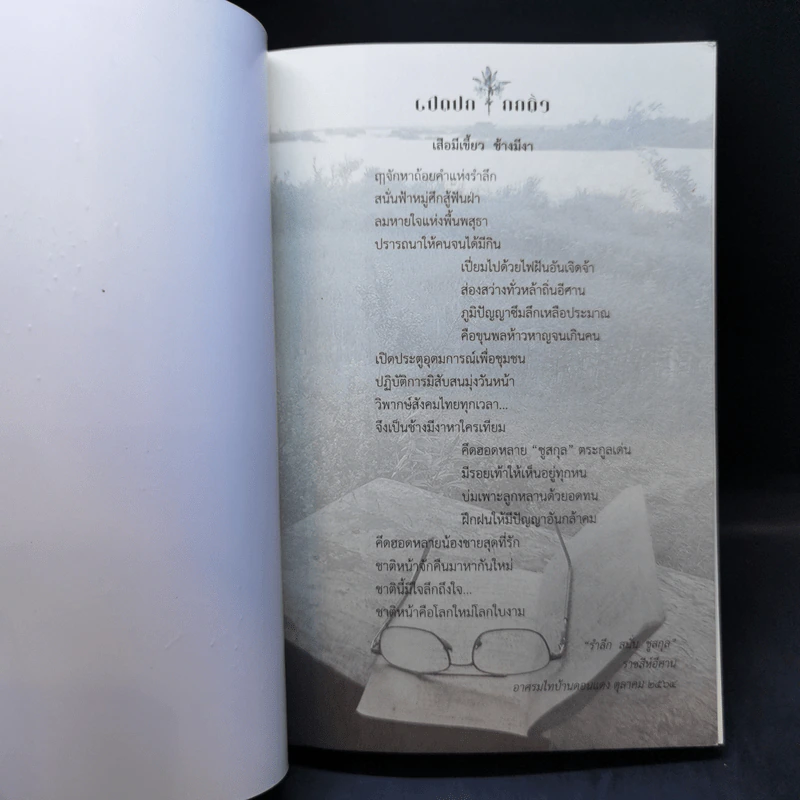 เปิดปก ถกถึง
เสือมีเขี้ยว ช้างมีงา
ฤๅจักหาถ้อยคำแห่งรำลึก
สนั่นฟ้าหมู่ศึกสู้ฟันฝ่า
ลมหายใจแห่งพื้นพสุธา
ปรารถนาให้คนจนได้มีกิน
เปี่ยมไปด้วยไฟฝันอันเจิดจ้า
ส่องสว่างทั่วหล้าถิ่นอีศาน
ภูมิปัญญาซึมลึกเหลือประมาณ
คือขุนพลห้าวหาญจนเกินคน
เปิดประตูอุดมการณ์เพื่อชุมชน
ปฏิบัติการมิสับสนมุ่งวันหน้า
วิพากษ์สังคมไทยทุกเวลา...
จึงเป็นช้างมีงาหาใครเทียม
คึดฮอดหลาย “ชูสกุล” ตระกูลเด่น
มีรอยเท้าให้เห็นอยู่ทุกหน
บ่มเพาะลูกหลานด้วยอดทน
ฝึกฝนให้มีปัญญาอันกล้าคม
คึดฮอดหลายน้องชายสุดที่รัก
ชาติหน้าจักคืนมาหากันใหม่
ชาตินี้มีใจลึกถึงใจ...
ชาติหน้าคือโลกใหม่โลกใบงาม
“รำลึก สนั่น ชูสกุล”
ราชสีห์อีศาน
อาศรมไทบ้านดอนแดง ตุลาคม ๒๕๖๔